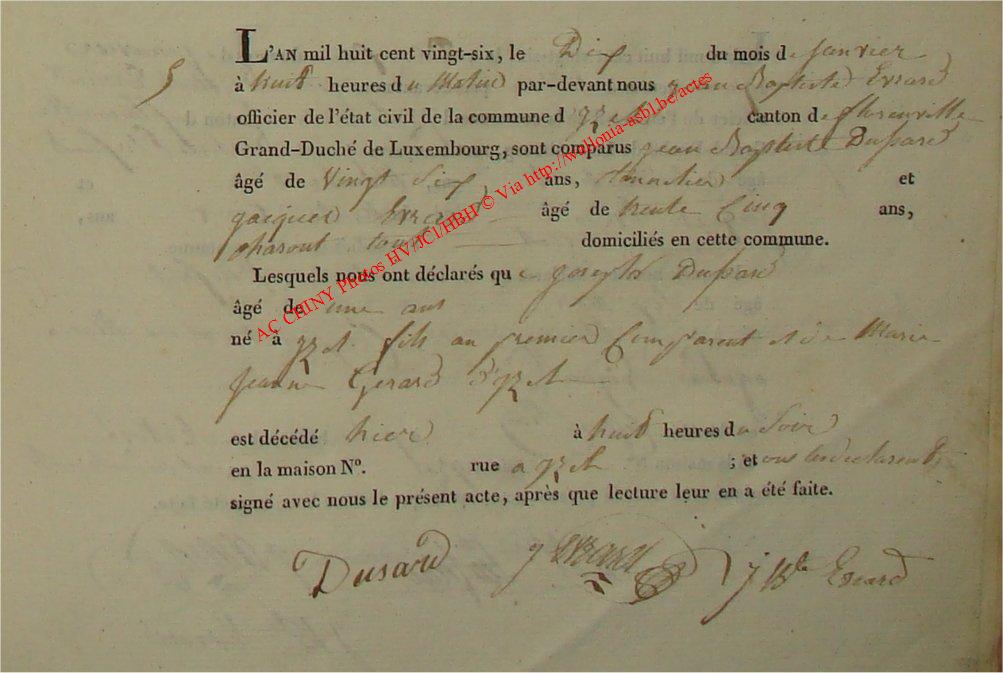 L'AN mil huit cent vingt-six, le Dix du mois de Janvier
5 à huit heures du Matin par-devant nous jean Baptiste Evrard
officier de l'état civil de la commune d'Izel canton de florenville
Grand-Duché de Luxembourg, sont comparus jean Baptiste Dussard
âgé de Vingt Six ans, et
jacques Evrard âgé de trente Cinq ans,
domiciliés en cette commune.
Lesquels nous ont déclarés que joseph Dussard
âgé de une ans
né à Izel fils au premier Comparant et de Marie
jeanne Gerard d'Izel
est décédé hier à huit heures du Soir
en la maison N°. rue a Izel ; et ont les declarants
signé avec nous le présent acte, après que lecture leur en a été faite.
Dusard J Evrard J Bte Evrard
AC CHINY Photos HV/JCl/HBH © Via http://wallonia-asbl.be/actes